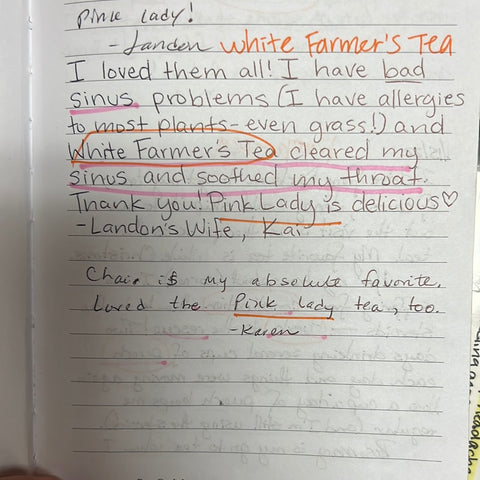 Pink lady!
-Landon White Farmer's Tea
I loved them all! I have bad
sinus problems (I have allergies
to most plants-even grass!) and
White Farmer's Tea cleared my
sinus and soothed my throat.
Thank you! Pink Lady is delicious♡
-Landon's Wife, Kai
Chai is my absolute favorite.
Loved the Pink lady tea, too.
-Karen